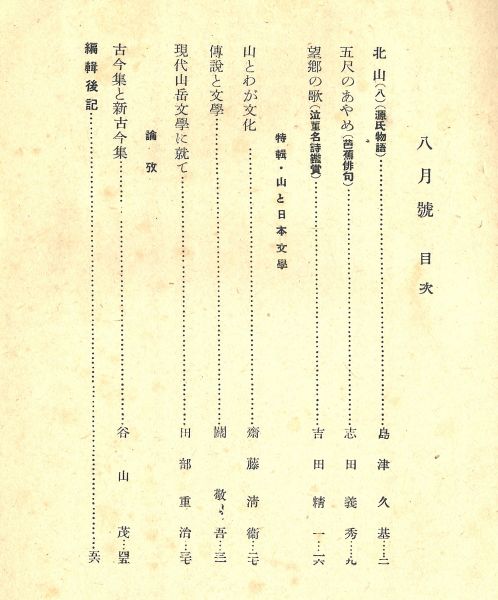 八月號 目次
北山(八)(源氏物語)……島津久基…二
五尺のあやめ(芭蕉俳句)……志田義秀…九
望鄕の歌(泣菫名詩鑑賞)……吉田精一…一六
特輯・山と日本文學
山とわが文化……齋藤淸衞…二七
傳說と文學……關敬吾…三一
現代山岳文學に就て……田部重治…三七
論攷
古今集と新古今集……谷山茂…四五
編輯後記……五六